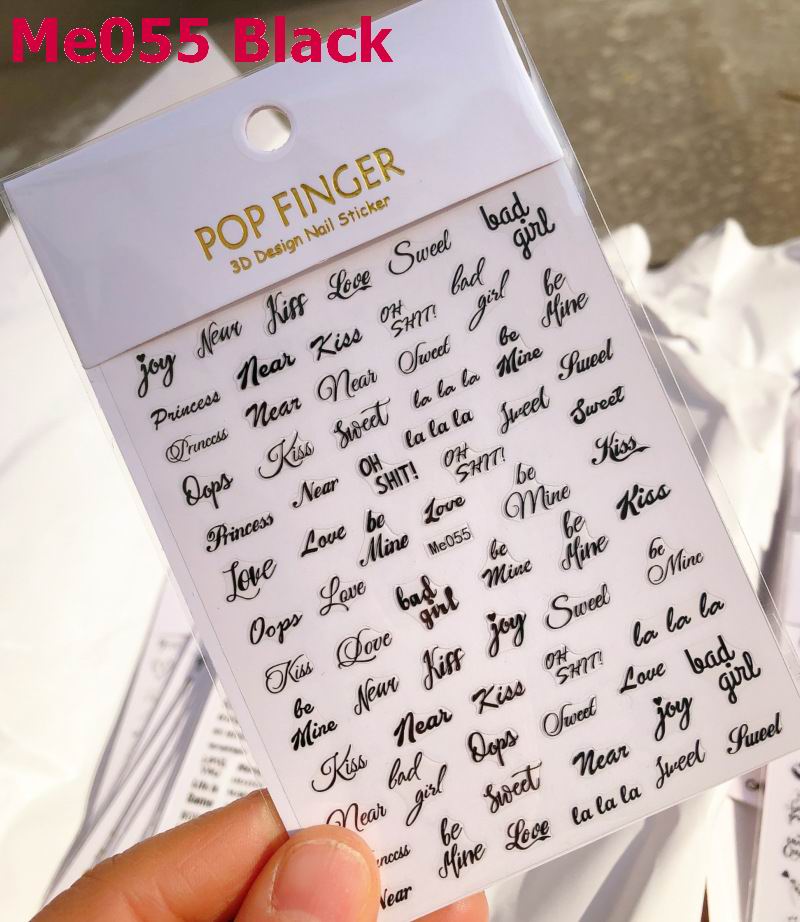 Me055 Black
POP FINGER
3D Design Nail Sticker
joy Near Kiss Love Sweet bad girl
Princess Near Kiss OH SHIT! bad girl be Mine
Princess Near Near Sweet be Mine Sweet
Oops Kiss Sweet la la la Sweet Sweet
la la la
Princess Near OH SHIT! OH SHIT! be Mine Kiss
Love Love be Mine Love Me055 be Mine Kiss
Oops Love bad girl be Mine be Mine
Kiss Love Kiss joy Sweet la la la
be Mine Near Near Kiss OH SHIT! Love bad girl
Kiss bad girl Oops Sweet joy
Near Sweet Near Sweet Sweet
be Mine Love la la la
Near